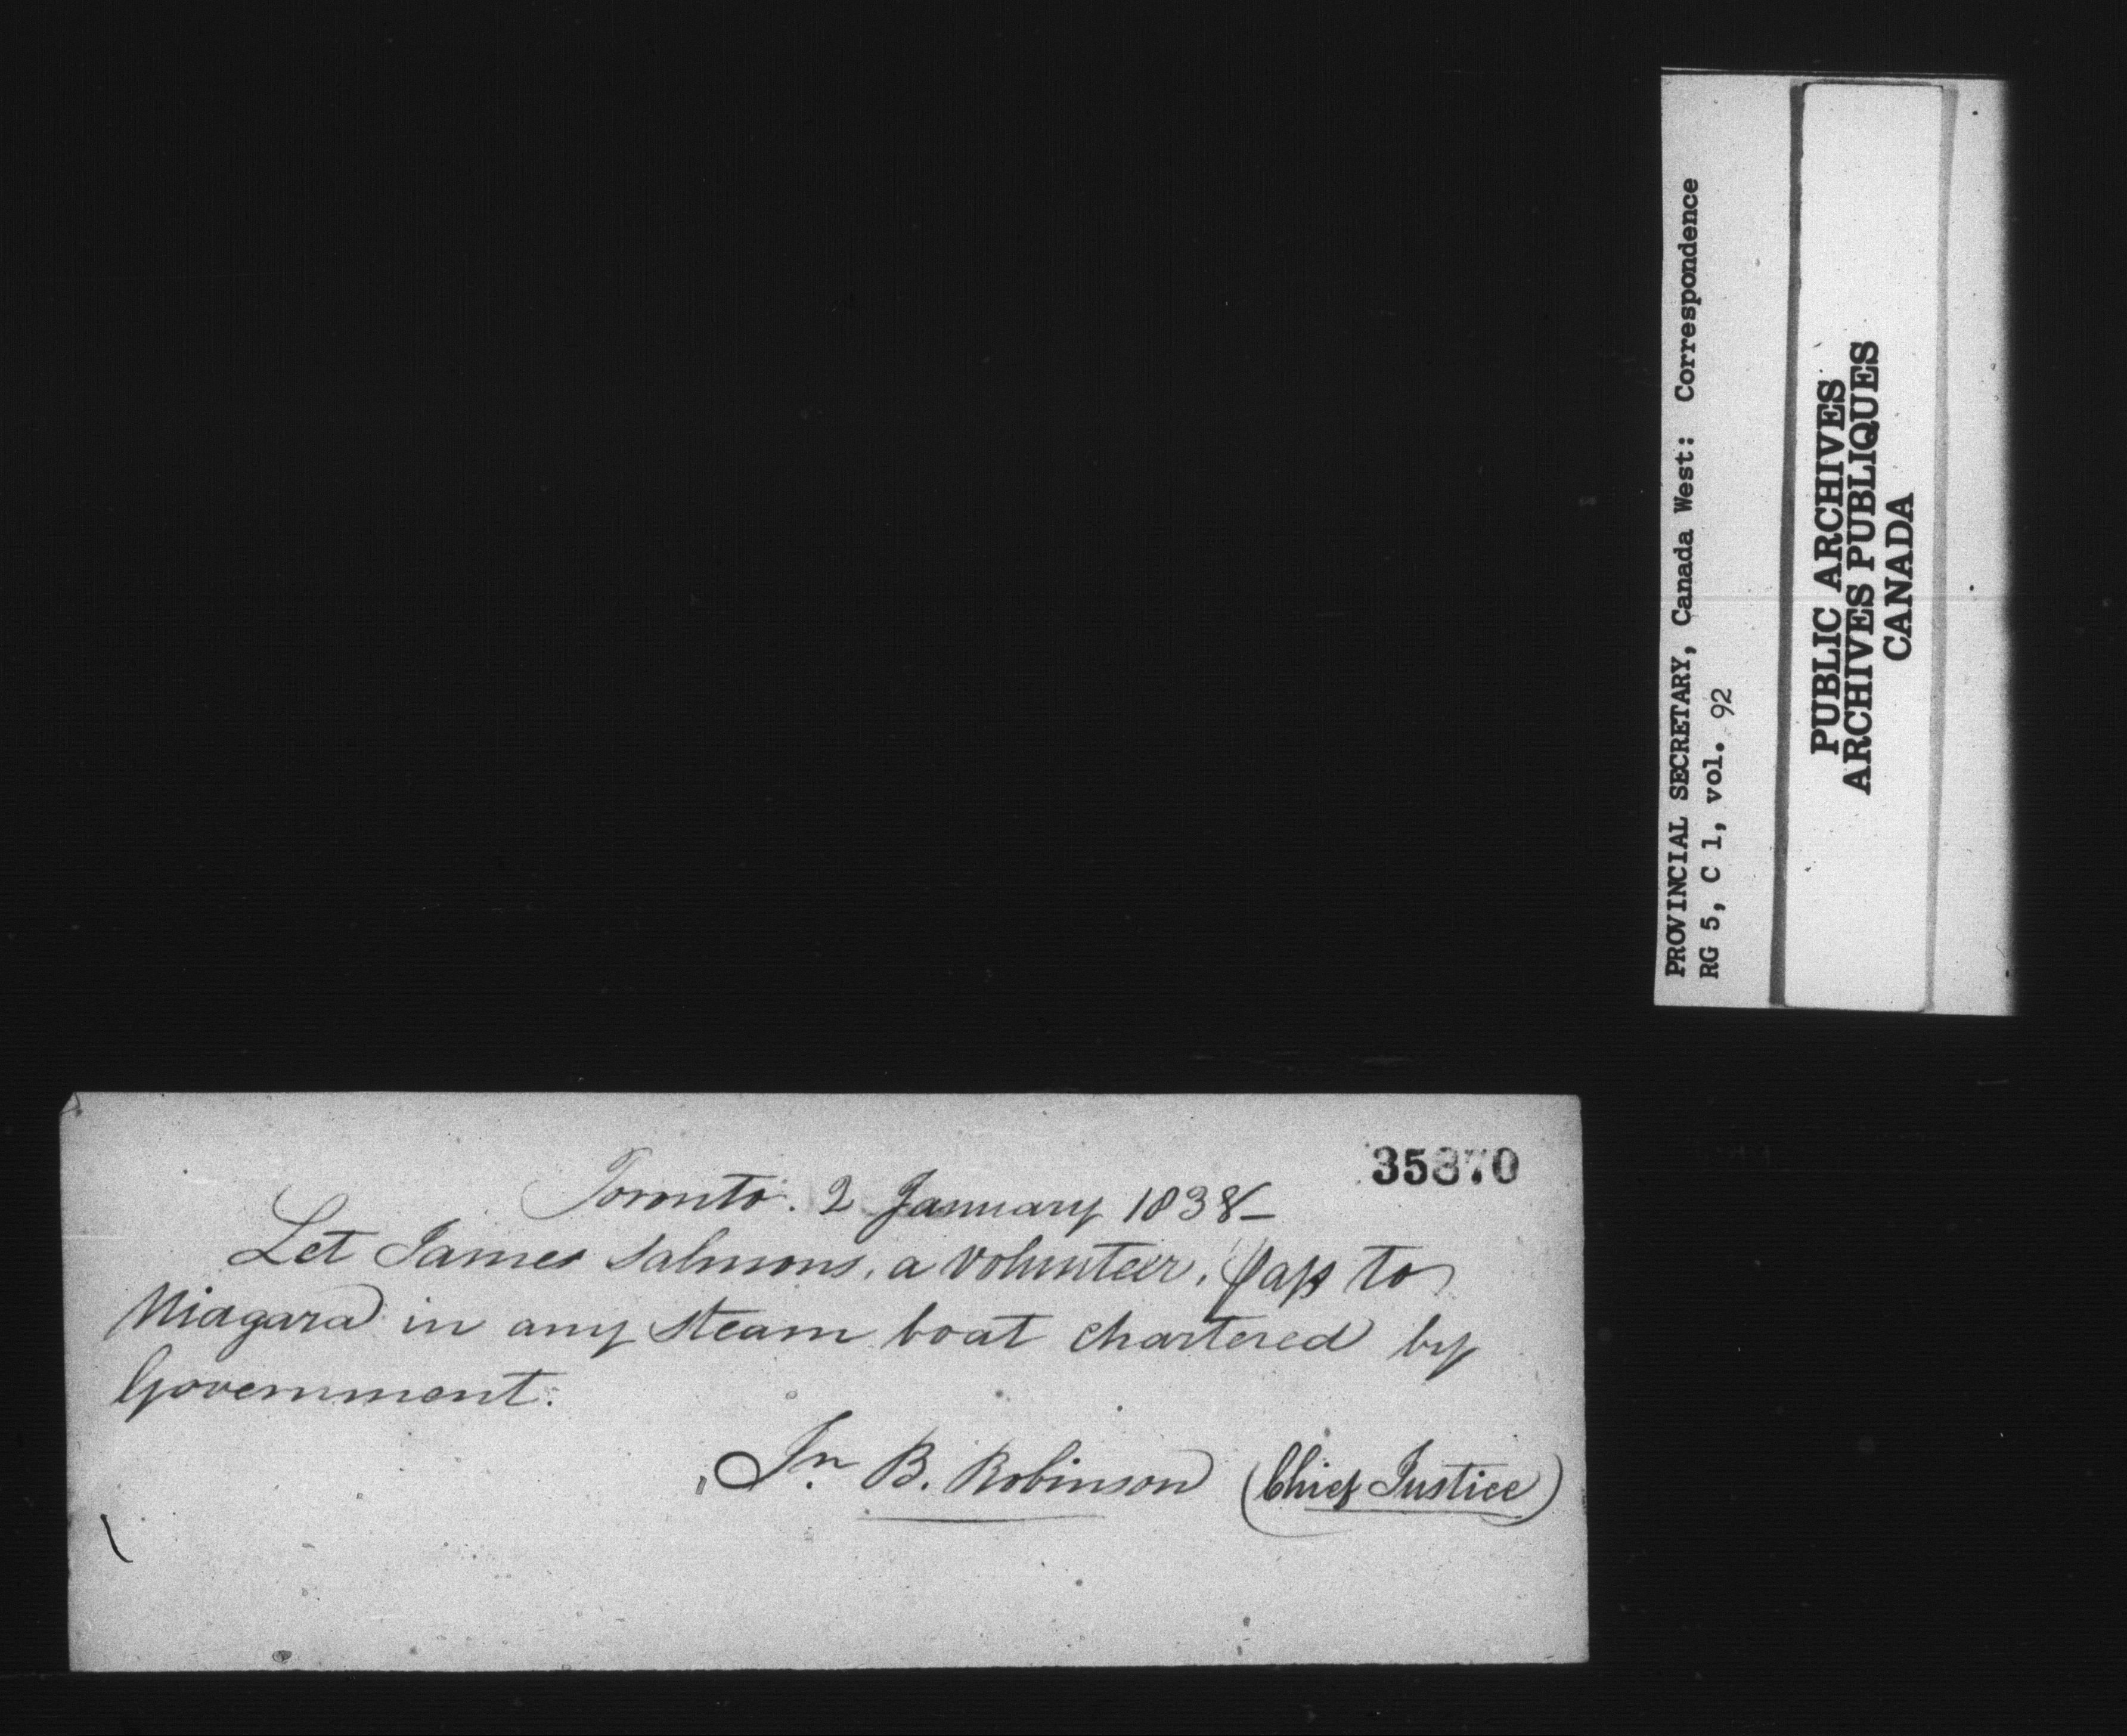 PROVINCIAL SECRETARY, Canada West: Correspondence
RG 5, C 1, vol. 92
PUBLIC ARCHIVES
ARCHIVES PUBLIQUES
CANADA
35870
Toronto. 2 January 1838_
Let James Salmons, a volunteer, pass to
Niagara in any steam boat chartered by
Government.
Jn B. Robinson (Chief Justice)